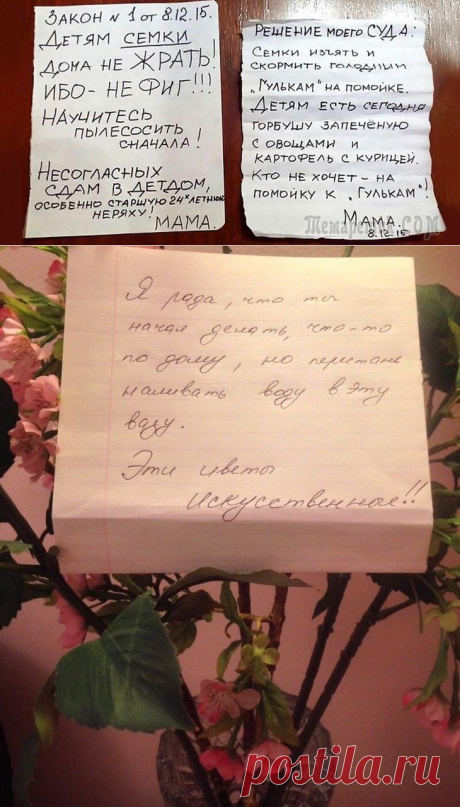 Закон N 1 от 8.12.15.
Детям семки
дома не жрать!
Ибо - не фиг!!!
Научитесь
пылесосить
сначала!
Несогласных
сдам в детдом,
особенно старшую 24х летнюю
неряху!
Мама.
Решение моего суда:
Семки изъять и
скормить голодным
„Гулькам" на помойке.
Детям есть сегодня
горбушу запеченую
с овощами и
картофель с курицей.
Кто не хочет - на
помойку к „Гулькам"!
Мама.
8.12.15
Я рада, что ты
начал делать, что-то
по дому, но перитань
наливать воду в эту
вазу.
Эти цветы
искусственные!!
postila.ru